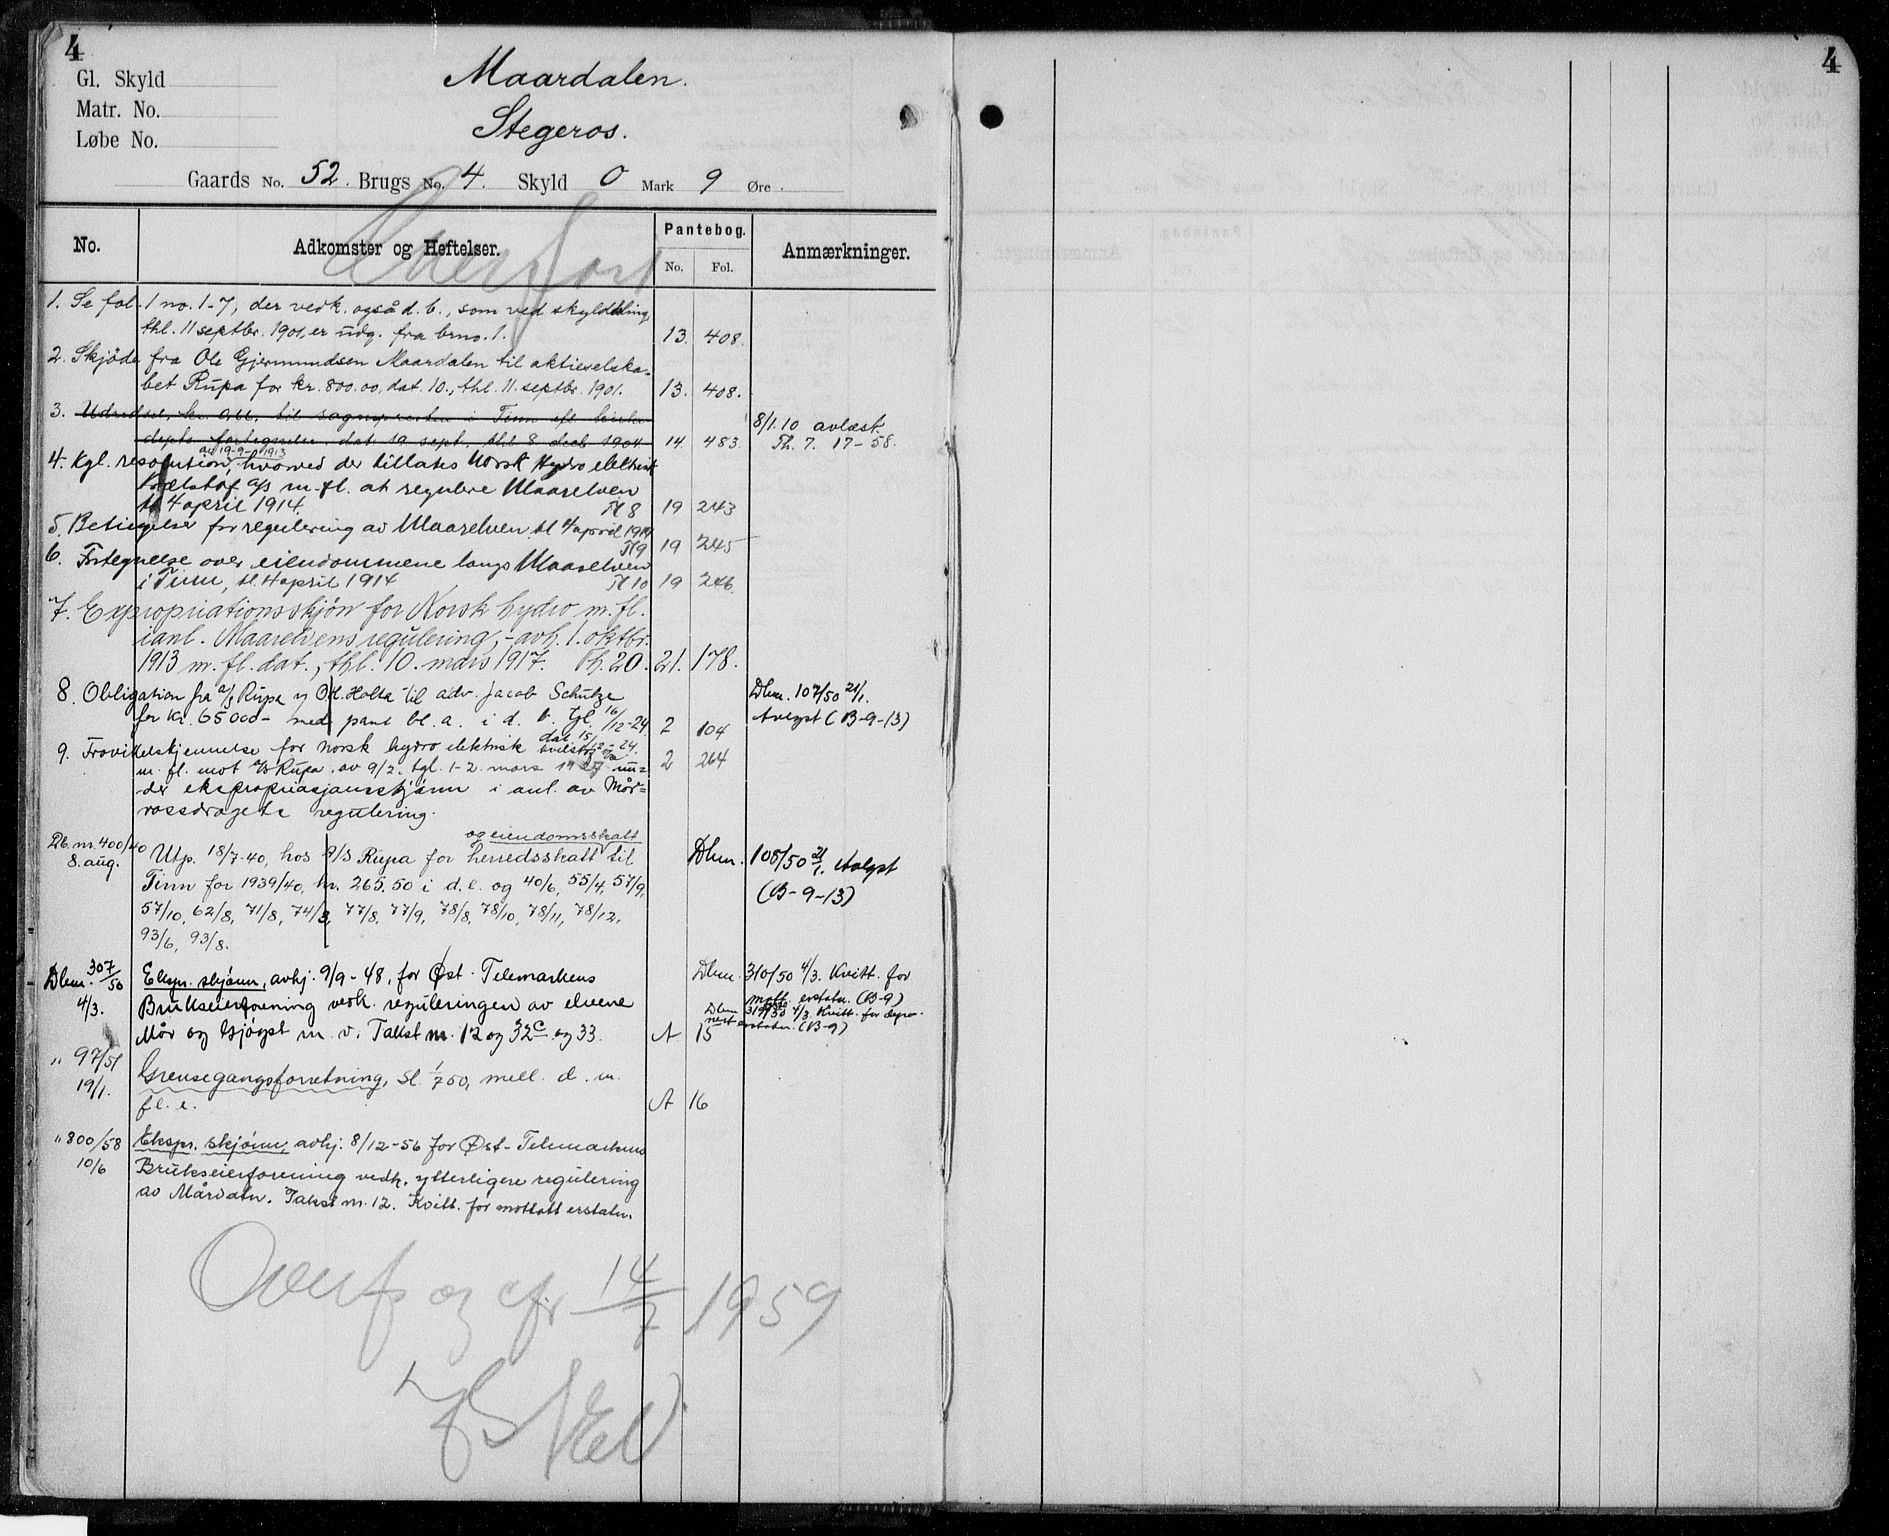 4
4
Gl. Skyld
Maardalen.
Matr. No.
Stegeros.
Løbe No.
Gaards No. 52. Brugs No. 4. Skyld 0 Mark 9 Øre
Overført
No. Adkomster og Heftelser. Pantebog. Anmærkninger.
No. Fol.
1. Se fol. 1 no. 1-7, der vedk. også d. b., som ved skylddeling,
thl. 11 septbr. 1901, er udg. fra brno. 1. 13. 408.
2. Skjöde fra Ole Gjermundsen Maardalen til aktieselska-
bet Rupa for kr. 800.00, dat. 10., thl. 11. septbr. 1901. 13. 408.
3. til sognepresten i Tinn efl. kirke
depts fortegnelse dat. 19 sept., thl. 8. decb 1904 14 483. 8/1.10 avlæst.
Th. 7. 17-58.
av 19-9-1913
4. Kgl. resolution, hvorved der tillates Norsk Hydro elektrisk
kvælstof a/s m. fl. at regulere Maarelven
tl. 4 april 1914. Tl 8 19 243
5. Betingelser for regulering av Maarelven tl 4 april 1914
Tl 9 19 245
6. Fortegnelse over eiendommene langs Maarelven
i Tinn, tl. 4 april 1914 Tl 10 19 246
7. Expropriationsskjön for Norsk hydro m. fl.
i anl. Maarelvens regulering, - avh. 1. oktbr.
1913 m. fl. dat., thl. 10. mars 1917. Th. 20. 21. 178.
8. Obligation fra a/s Rupa og O.H. Holta til adv. Jacob Schulze Dbnr. 107/50 21/1.
for kr. 65000- med pant bl. a. i d. b. tgl. 16/12-24 2 104 Avlyst (B-9-13)
dat. 15/12-24.
9. Fravikelskjennelse for norsk hydro elektrisk kvelstof a/s 2 264
m. fl. mot a/s Rupa, av 9/2, tgl. 1-2. mars 1927 un-
der ekspropriasjonsskjønn i anl. av Mår-
vassdragets regulering.
og eiendomsskatt
Db. nr. 400/40 Utp. 18/7-40, hos A/S Rupa for herredsskatt til Dbnr. 108/50 21/1. Avlyst
8. aug. Tinn for 1939/40, kr. 265.50 i d. e. og 40/6, 55/4, 57/9, (B-9-13)
57/10, 62/8, 71/8, 74/8, 77/8, 77/9, 78/8, 78/10, 78/11, 78/12,
93/6, 93/8.
Dbnr. 307/50 Ekspr. skjønn, avhj. 9/9-48, for Øst-Telemarkens Dbnr. 310/50 4/3. Kvitt. for
4/3. Brukseierforening vedk. reguleringen av elvene mott. erstatn. (B-9)
Dbnr 4/3. Kvitt. for
erstatn. (B-9)
Mår og Gjøyst m. v. Takst nr. 12 og 32c og 33. A 15
" 97/51 Grensegangsforretning, sl. 1/7 50, mell. d. m.
19/1. fl. e. A 16
" 800/58 Ekspr. skjønn, avhj. 8/12-56 for Øst-Telemarkens
10/6 Brukseierforening vedk. ytterligere regulering
av Mårvatn. Takst nr. 12. Kvitt. for mottatt erstatn.
Overf og cfr 14/7 1959